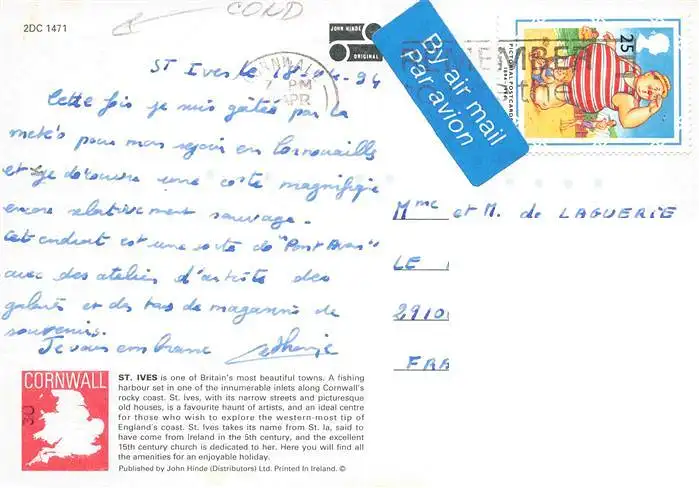 2DC 1471
CORD
JOHN HINDE
ORIGINAL
St Ives le 18-04-94
CORNWALL
7 PM
APR
By air mail
Par avion
25
PICTORIAL POSTCARDS
Cette fois je suis gâtée par la
météo pour mon séjour en Cornouailles
et je découvre une côte magnifique
encore relativement sauvage.
Cet endroit est une sorte de "Pont Aven"
avec des ateliers d'artiste des
galeries et des tas de magasins de
souvenirs.
Je vous embrasse
Mme et M. de LAGUERIE
LE
2910
FRA
CORNWALL
30
ST. IVES is one of Britain's most beautiful towns. A fishing
harbour set in one of the innumerable inlets along Cornwall's
rocky coast. St. Ives, with its narrow streets and picturesque
old houses, is a favourite haunt of artists, and an ideal centre
for those who wish to explore the western-most tip of
England's coast. St. Ives takes its name from St. Ia, said to
have come from Ireland in the 5th century, and the excellent
15th century church is dedicated to her. Here you will find all
the amenities for an enjoyable holiday.
Published by John Hinde (Distributors) Ltd. Printed In Ireland. ©